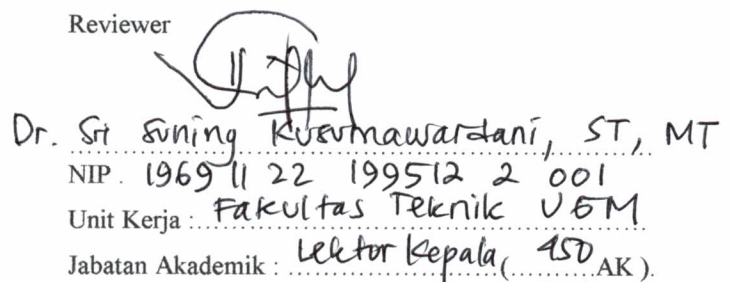 Reviewer
Dr. Sri Suning Kusumawardani, ST, MT
NIP. 19691122 199512 2 001
Unit Kerja : Fakultas Teknik UGM
Jabatan Akademik : Lektor Kepala ( 450 AK ).